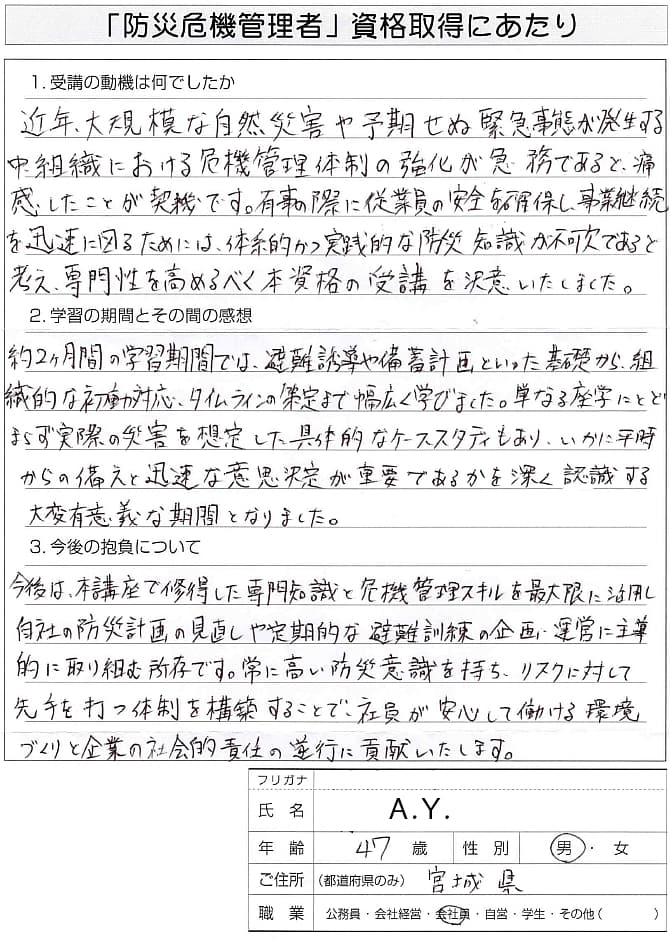 「防災危機管理者」資格取得にあたり
1. 受講の動機は何でしたか
近年、大規模な自然災害や予期せぬ緊急事態が発生する
中、組織における危機管理体制の強化が急務であると、痛
感したことが契機です。有事の際に従業員の安全を確保し、事業継続
を迅速に図るためには、体系的かつ実践的な防災知識が不可欠であると
考え、専門性を高めるべく本資格の受講を決意いたしました。
2. 学習の期間とその間の感想
約2ヶ月間の学習期間では、避難誘導や備蓄計画といった基礎から、組
織的な初動対応、タイムラインの策定まで幅広く学びました。単なる座学にとど
まらず実際の災害を想定した具体的なケーススタディもあり、いかに平時
からの備えと迅速な意思決定が重要であるかを深く認識する
大変有意義な期間となりました。
3. 今後の抱負について
今後は、本講座で修得した専門知識と危機管理スキルを最大限に活用し
自社の防災計画の見直しや定期的な避難訓練の企画・運営に主導
的に取り組む所存です。常に高い防災意識を持ち、リスクに対して
先手を打つ体制を構築することで、社員が安心して働ける環境
づくりと企業の社会的責任の遂行に貢献いたします。
フリガナ
氏名 A.Y.
年齢 47 歳 性別 男・女
ご住所 (都道府県のみ) 宮城県
職業 公務員・会社経営・会社員・自営・学生・その他( )